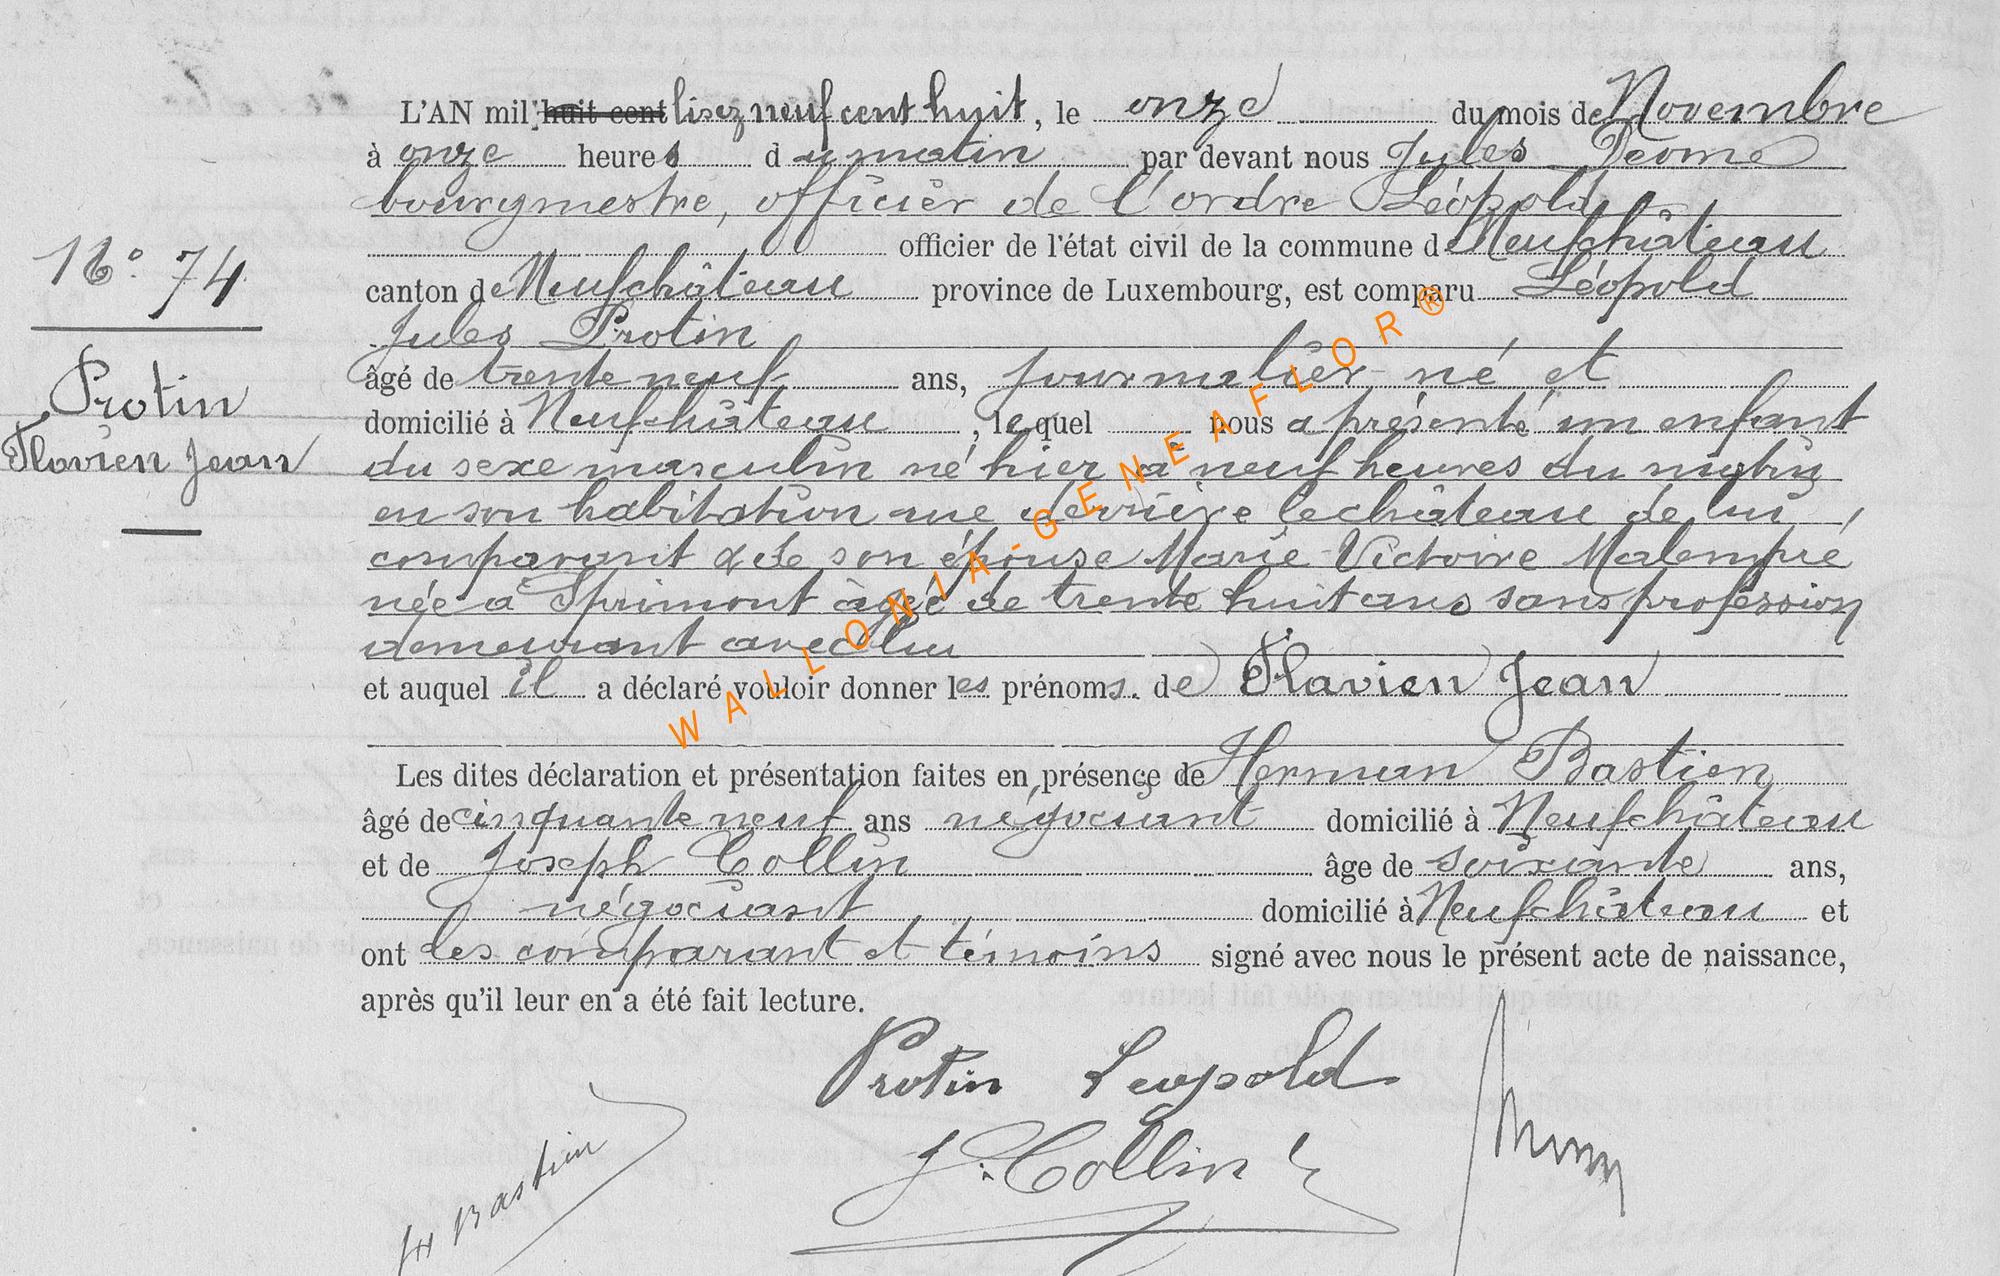 L'AN mil huit cent lisez neuf cent huit, le onze du mois de Novembre
à onze heures du matin par devant nous Jules Déome
bourgmestre, officier de l'ordre Léopold
officier de l'état civil de la commune de Neufchâteau
N° 74
canton de Neufchâteau province de Luxembourg, est comparu Léopold
Jules Protin
âgé de trente neuf ans, journalier né et
Protin
domicilié à Neufchâteau, lequel nous a présenté un enfant
Flavien Jean
du sexe masculin né hier à neuf heures du matin
en son habitation rue derrière le château de lui
comparant & de son épouse Marie Victoire Malempré
née à Sprimont âgée de trente huit ans sans profession
demeurant avec lui
et auquel il a déclaré vouloir donner les prénoms. de Flavien Jean
Les dites déclaration et présentation faites en présence de Herman Bastien
âgé de cinquante neuf ans négociant domicilié à Neufchâteau
et de Joseph Collin âge de soixante ans,
négociant domicilié à Neufchâteau et
ont les comparant et témoins signé avec nous le présent acte de naissance,
après qu'il leur en a été fait lecture.
Protin Leopold
J. Collin
H Bastien
WALLONIA-GENEAFLOR®